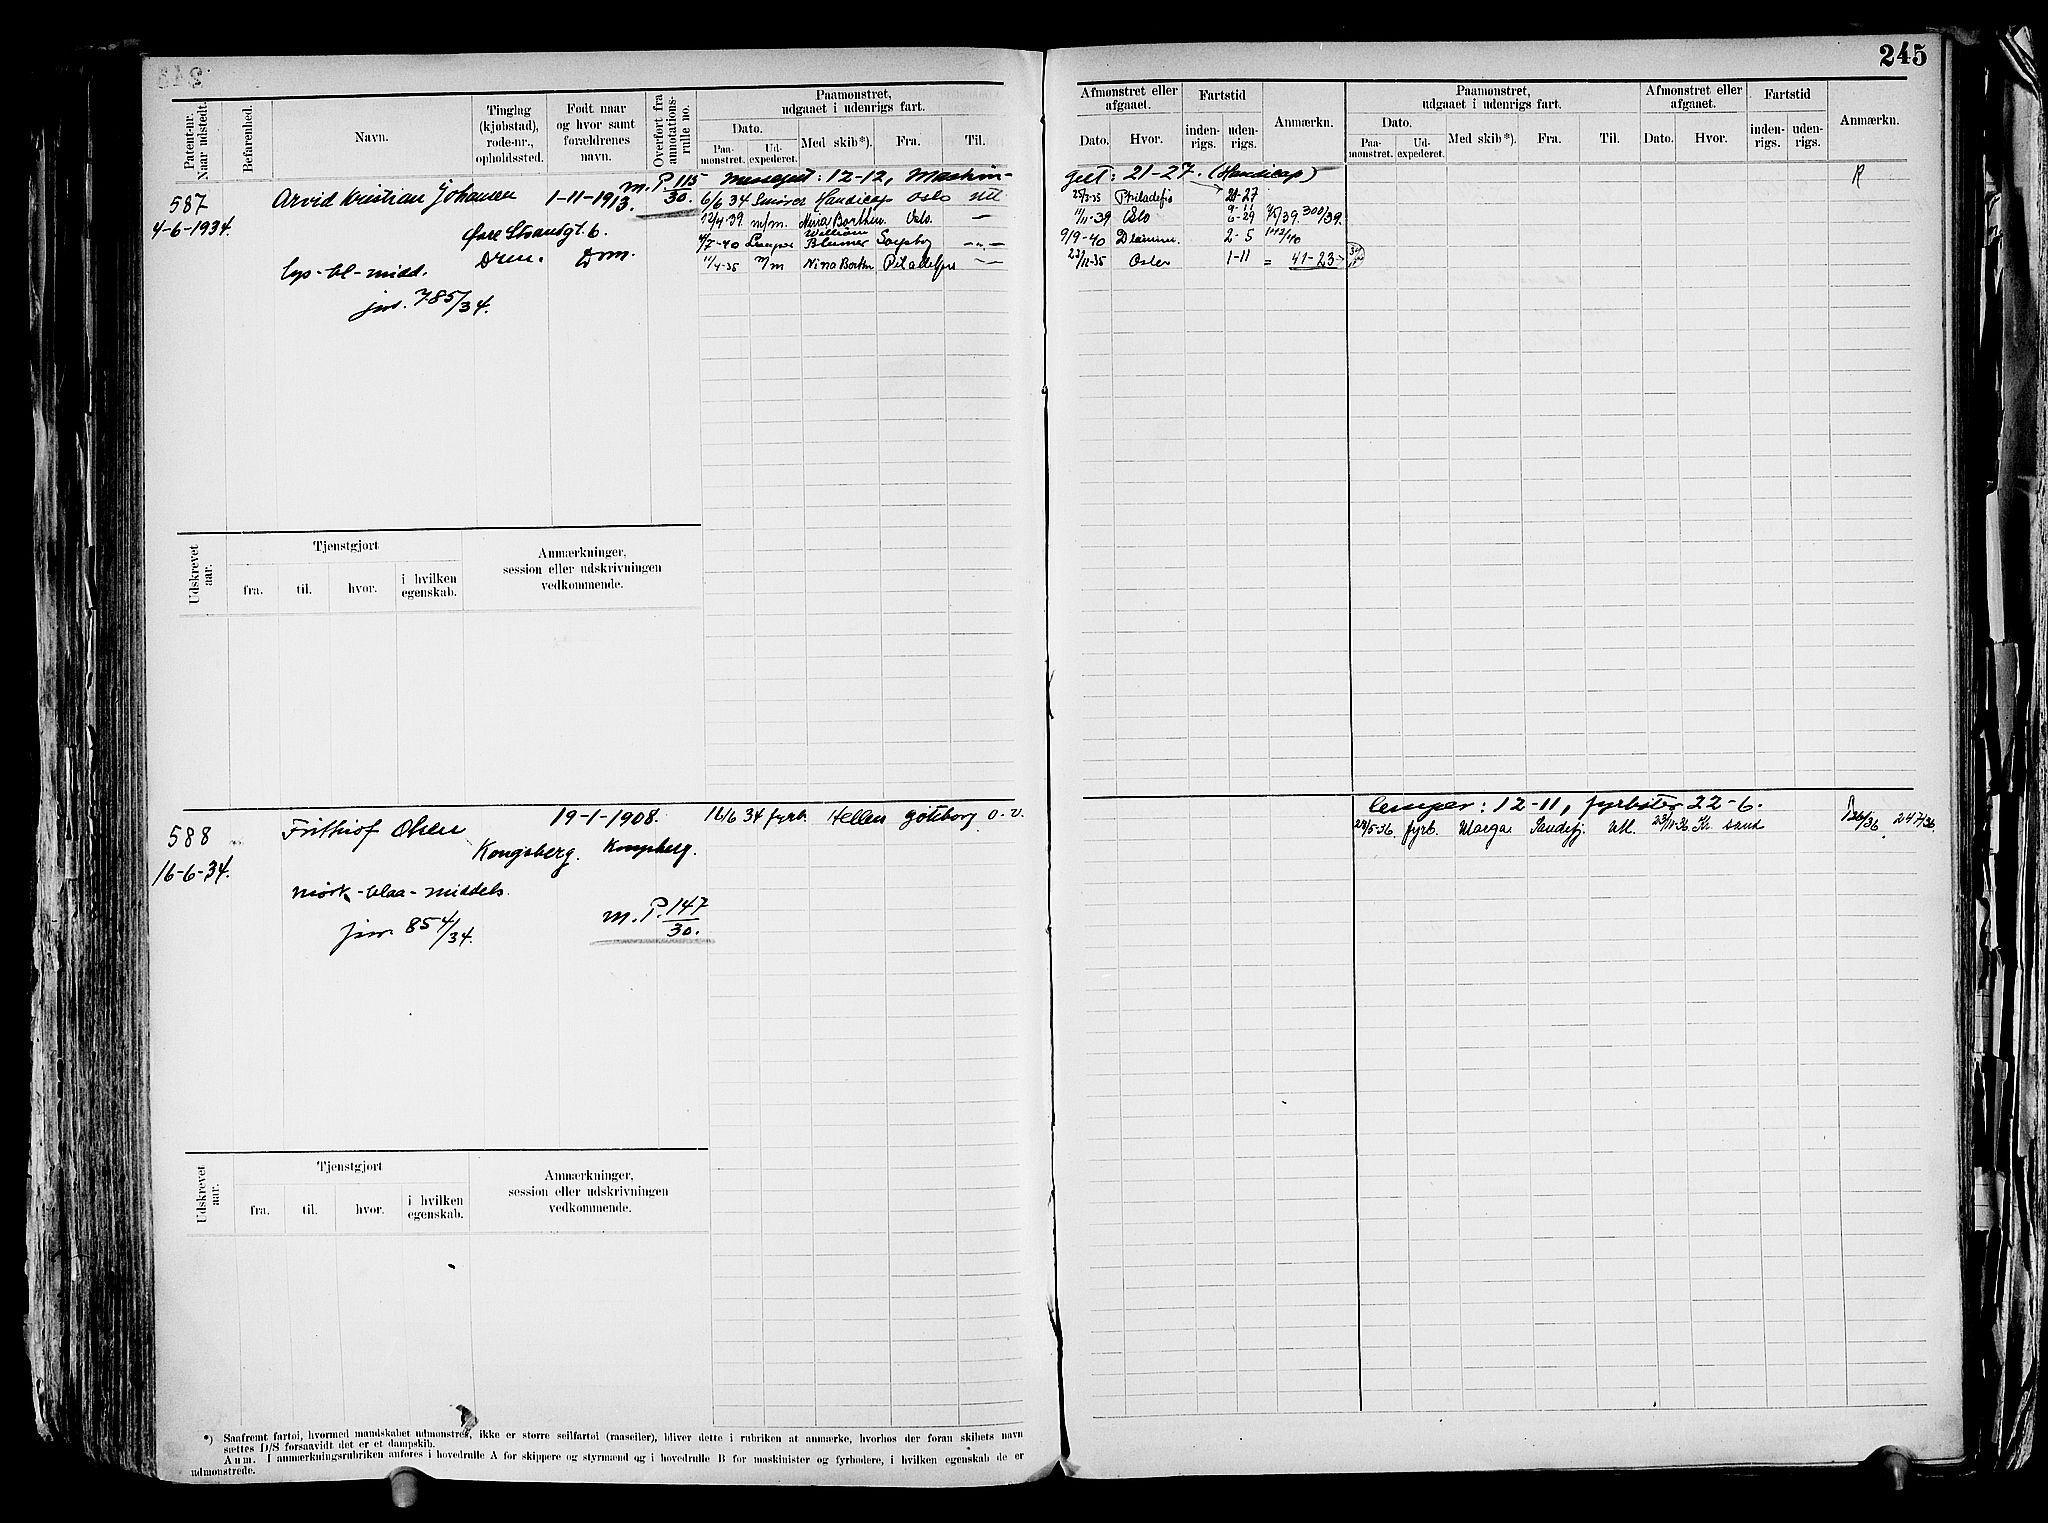 245
Patent-nr.
Naar udstedt.
Befarenhed.
Navn.
Tinglag
(kjøbstad),
rode-nr.,
opholdssted.
Født naar
og hvor samt
forældrenes
navn.
Overført fra
annotations-
rulle no.
Paamønstret,
udgaaet i udenrigs fart.
Dato.
Paa-
mønstret.
Ud-
expederet.
Med skib*).
Fra.
Til.
Afmønstret eller
afgaaet.
Dato.
Hvor.
Fartstid
inden-
rigs.
uden-
rigs.
Anmærkn.
Paamønstret,
udgaaet i udenrigs fart.
Dato.
Paa-
mønstret.
Ud-
expederet.
Med skib*).
Fra.
Til.
Afmønstret eller
afgaaet.
Dato.
Hvor.
Fartstid
inden-
rigs.
uden-
rigs.
Anmærkn.
587
4-6-1934.
Arvid Kristian Johansen
1-11-1913.
m. P. 115/30.
Øvre Strandgt. 6.
Drm. Drm.
lys-bl-midd.
jnr. 785/34.
Messegut: 12-12, Maskin-
gut: 21-27. (Handicap)
R
6/6 34 Smører Handicap Oslo utl
25/3-35 Philadefia 21-27
12/4-39. m/m. Nina Borthen Oslo. —
11/11-39 Oslo 6-29
4/7-40 Lemper William Blumer Sarpsbg —"—
9/9-40 Dramm. 2-5
11/4-35 m/m Nina Borthen Piladelfia —
23/11-35 Oslo 1-11 = 41-23
Udskrevet
aar.
Tjenstgjort
fra.
til.
hvor.
i hvilken
egenskab.
Anmærkninger,
session eller udskrivningen
vedkommende.
588
16-6-34.
Frithiof Olsen
19-1-1908.
Kongsberg. Kongsberg.
mørk-blaa-middels.
jnr. 854/34.
m. P. 147/30.
16/6 34 fyrb. Hellen Gøteborg o.v.
lemper: 12-11, fyrbøter 22-6.
24/5-36 fyrb. Marga. Sandefj. Utl. 23/11-36 Kr. sand
247/36.
Udskrevet
aar.
Tjenstgjort
fra.
til.
hvor.
i hvilken
egenskab.
Anmærkninger,
session eller udskrivningen
vedkommende.
*) Saafremt fartøi, hvormed mandskabet udmønstres, ikke er større seilfartøi (raaseiler), bliver dette i rubriken at anmærke, hvorhos der foran skibets navn
sættes D/S forsaavidt det er et dampskib.
Anm. I anmærkningsrubriken anføres i hovedrulle A for skippere og styrmænd og i hovedrulle B for maskinister og fyrbødere, i hvilken egenskab de er
udmønstrede.